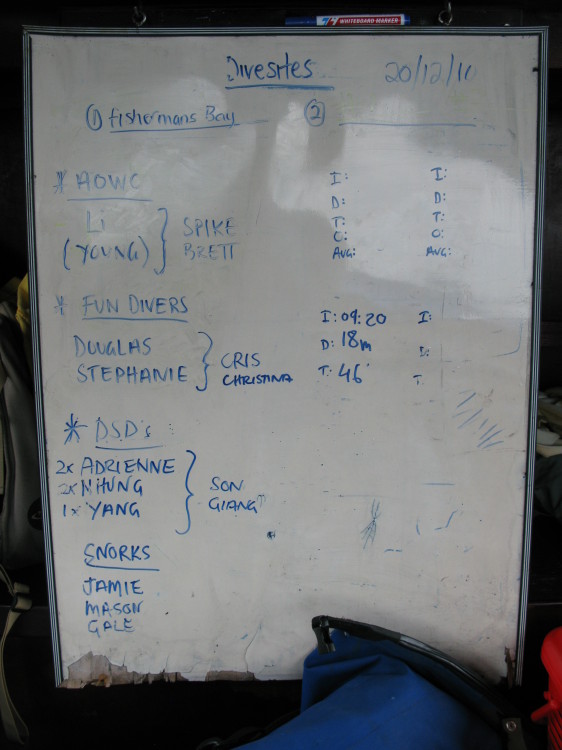 WHITEBOARD MARKER
Divesites 20/12/10
① fishermans Bay ②
* AOWC
Li
(YOUNG) } SPIKE
BRETT
I: I:
D: D:
T: T:
O: O:
AVG: AVG:
* FUN DIVERS
I: 09:20 I:
DOUGLAS D: 18m D:
STEPHANIE } CRIS
CHRISTINA T: 46' T:
* DSD's
2x ADRIENNE
2x NHUNG } SON
1x YANG GIANG
SNORKS
JAMIE
MASON
GALE